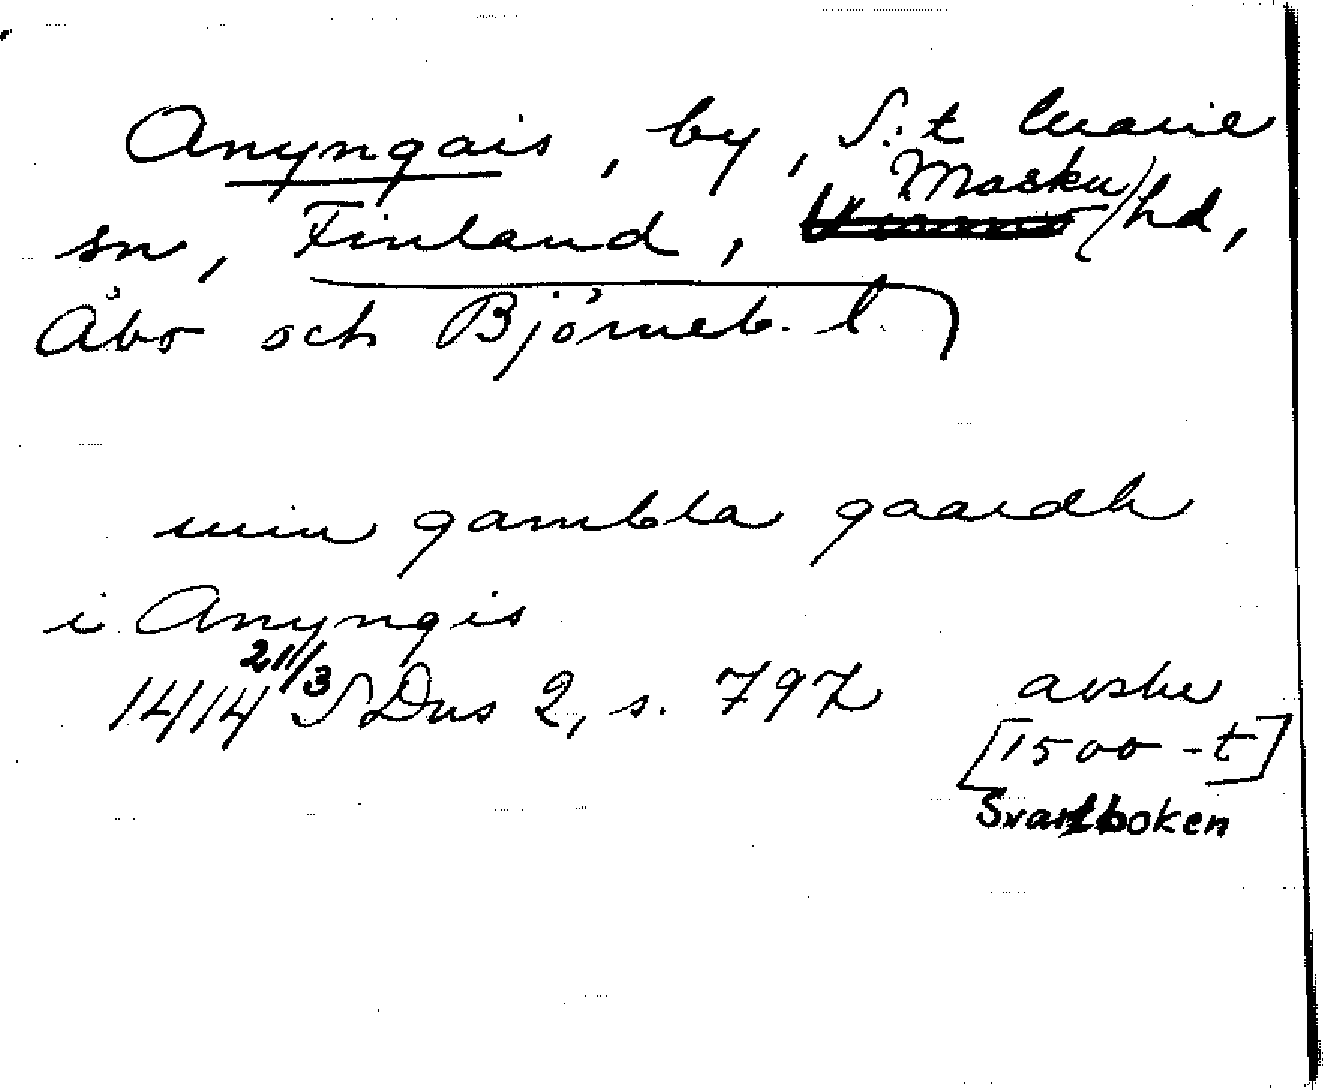 Anyngais, by, S:t Marie
Masku
sn, Finland, hd,
Åbo och Björneb. l.
min gambla gaardh
i Anyngis
1414 21/3 SDns 2, s. 797 avskr
[1500-t]
Svartboken